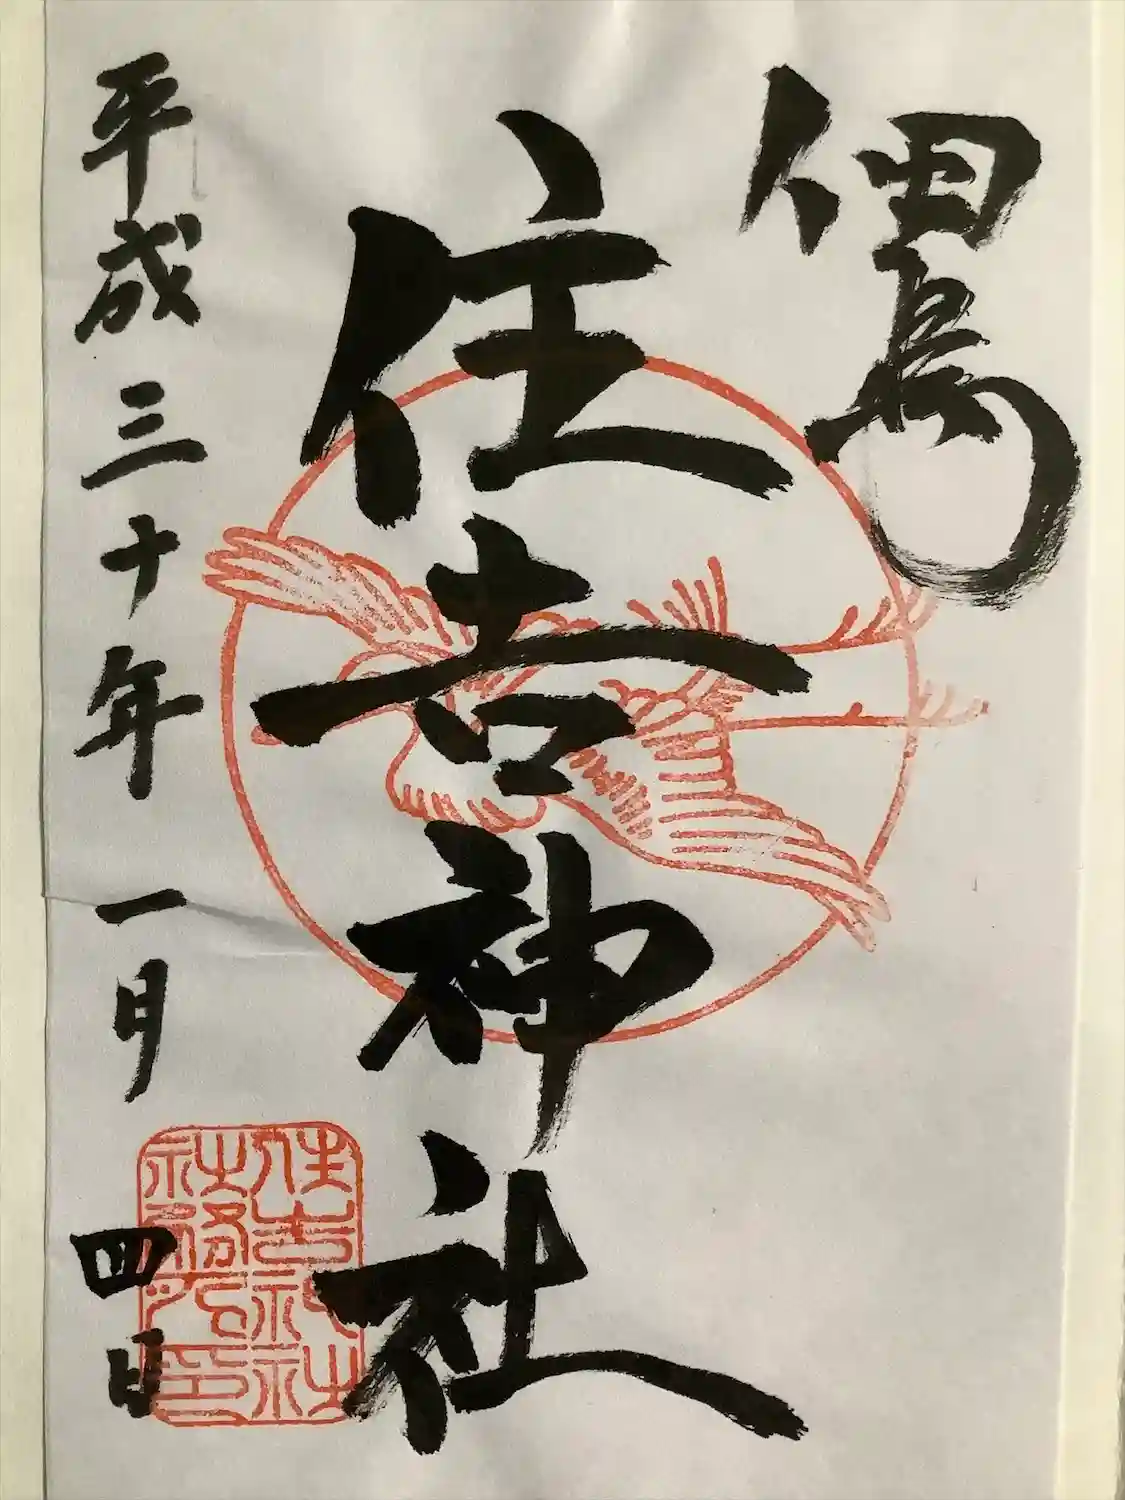 佃島
住吉神社
平成三十年一月四日
住吉神社
社務所印